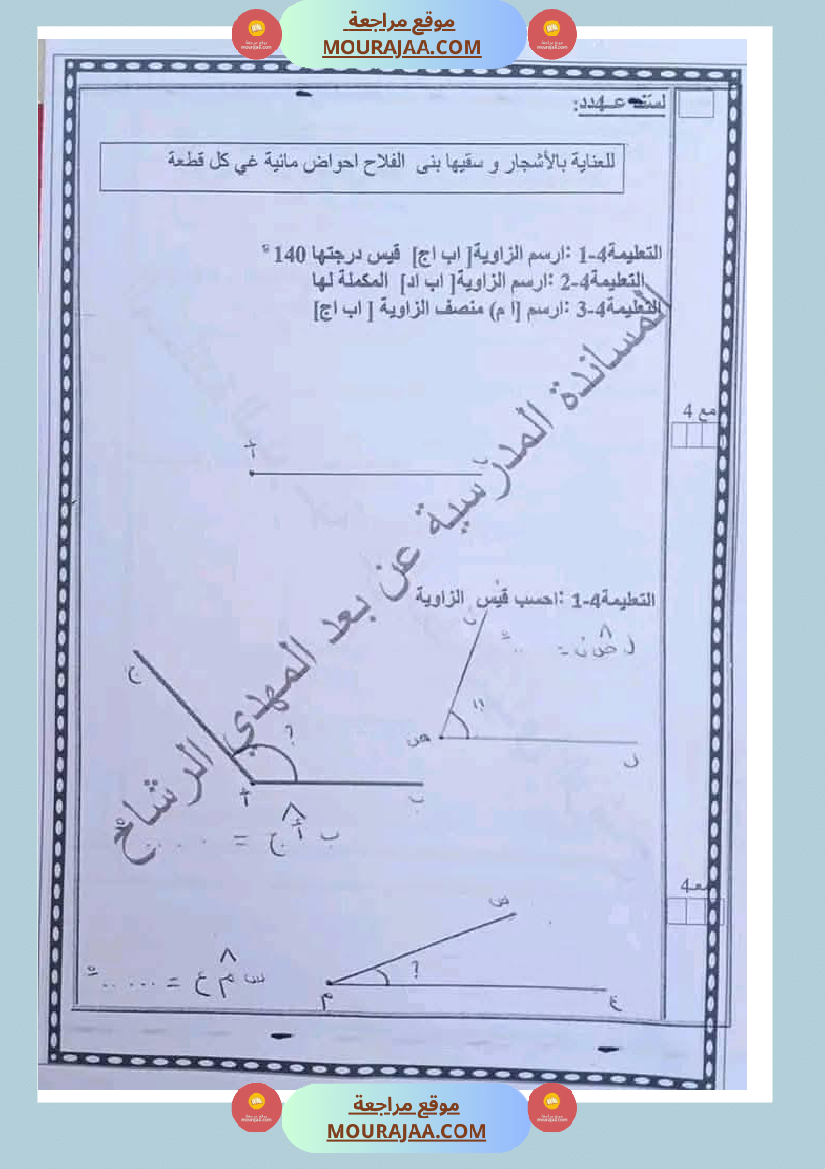 موقع مراجعة
MOURAJAA.COM
لسند عـ4ـدد:
للعناية بالأشجار و سقيها بنى الفلاح احواض مائية غي كل قطعة
التعليمة4-1 :ارسم الزاوية[ اب اج] قيس درجتها 140 °
التعليمة4-2 :ارسم الزاوية[ اب اد] المكملة لها
التعليمة4-3 :ارسم [ا م) منصف الزاوية [ اب اج]
مع 4
أ
التعليمة4-1 :احسب قيس الزاوية
ن
ل ص ن = .. °
ص
ل
ج
?
أ
ب
ب أ ج = . . . . °
مع4
س
?
م
ع
س م ع = ... .. °
المساندة المدرسية عن بعد المهدي الرشائح
موقع مراجعة
MOURAJAA.COM